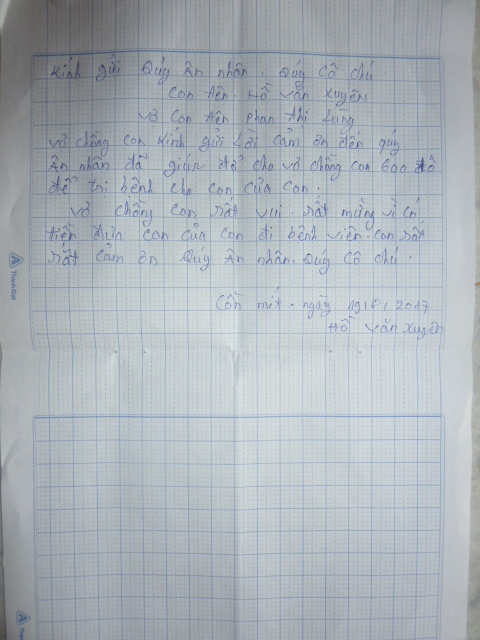 Kính gửi Quý Ân nhân. Quý Cô chú
Con tên. Hồ Văn Xuyên
Vợ Con tên Phan thị Lùng
Vợ chồng con Kính gửi Lời cảm ơn đến quý
Ân nhân đã giúp đỡ cho vợ chồng con 600 đô
để trị bệnh cho con của con.
Vợ chồng con rất vui. rất mừng vì có
tiền đưa con của con đi bệnh viện. con rất
rất cảm ơn Quý Ân nhân. Quý Cô chú.
Cồn mít. ngày 19 2017
Hồ Văn Xuyên
Thành Đạt